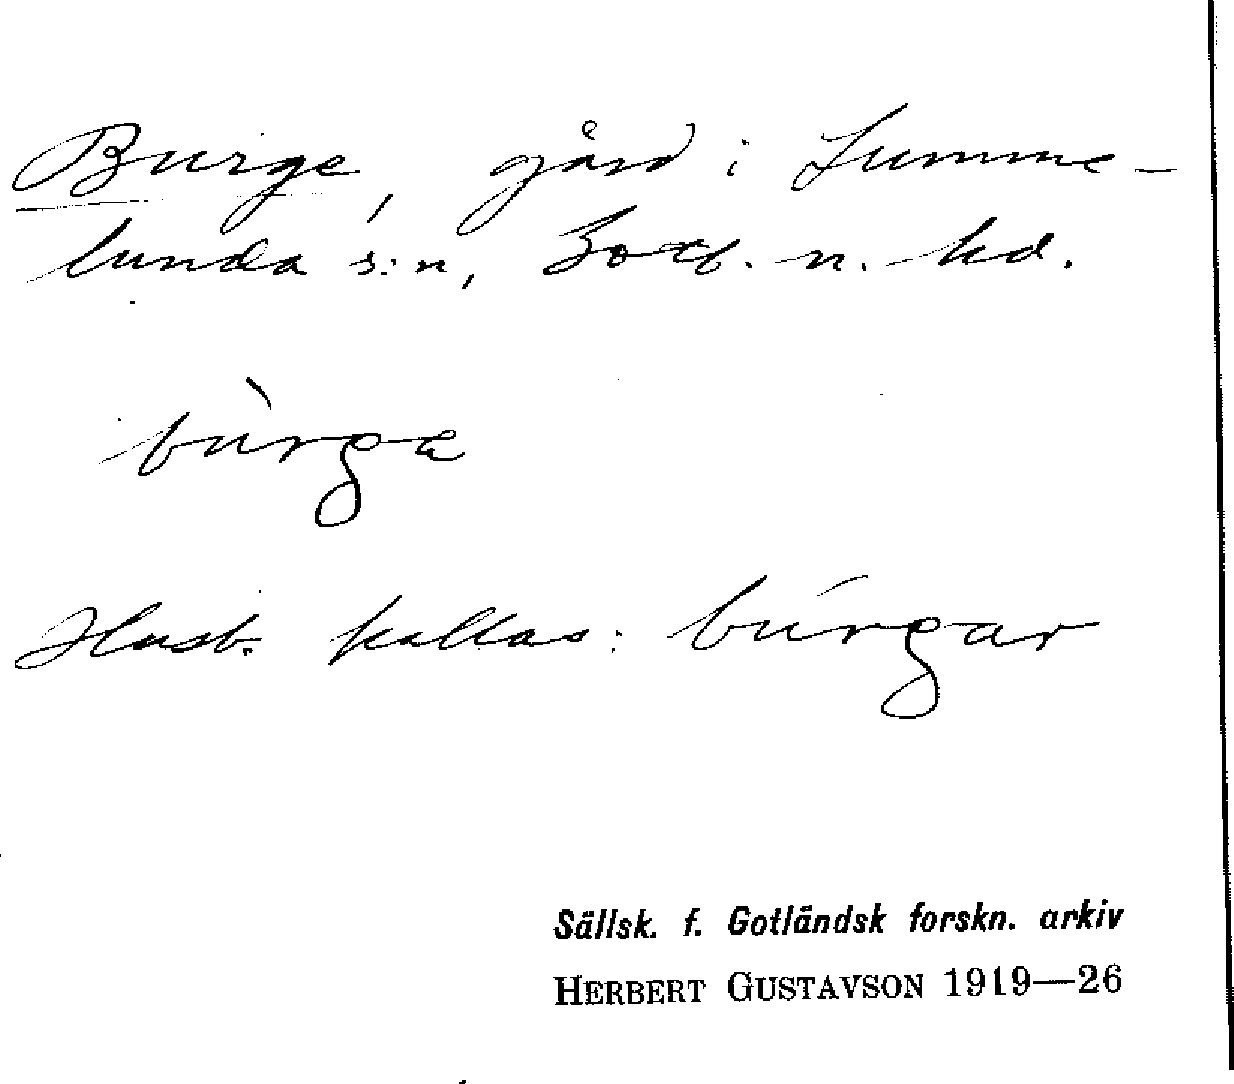 Burge, gård i Lumme-
lunda s:n, Gotl. n. hd.
bùrge
Husb. kallas: búrgar
Sällsk. f. Gotländsk forskn. arkiv
HERBERT GUSTAVSON 1919—26